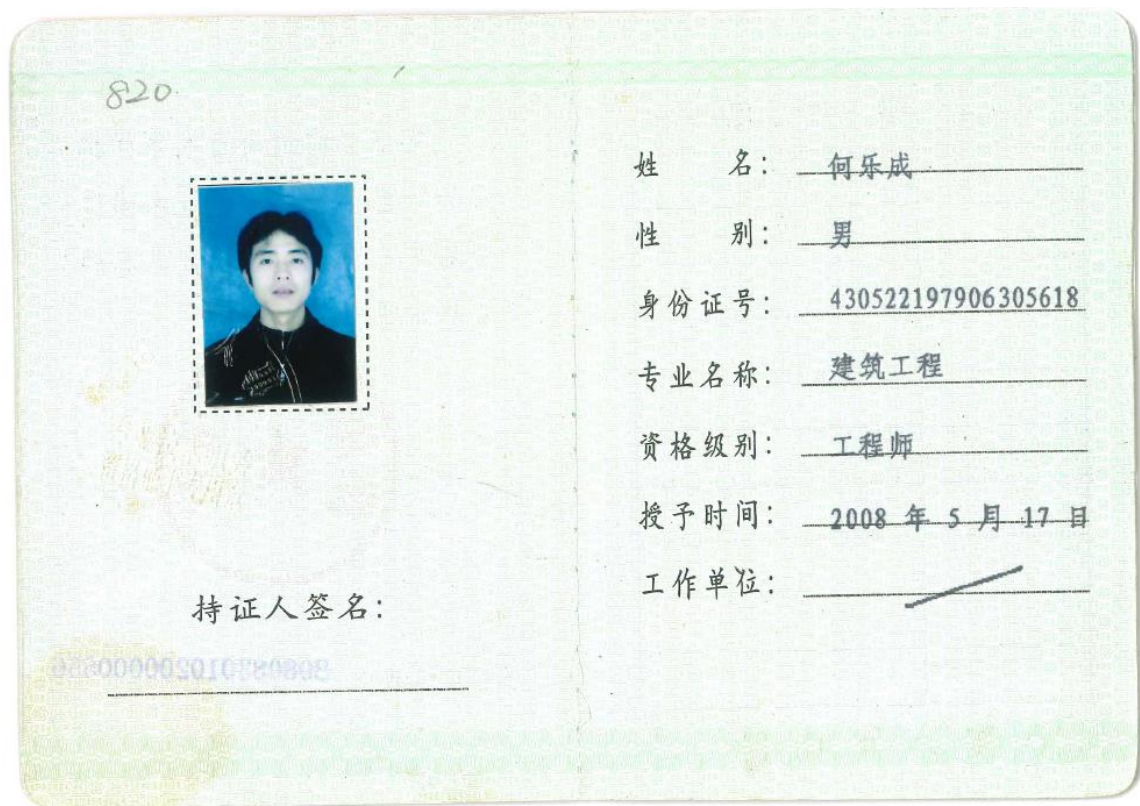 820
持证人签名:
姓名: 何乐成
性别: 男
身份证号: 430522197906305618
专业名称: 建筑工程
资格级别: 工程师
授予时间: 2008 年 5 月 17 日
工作单位: